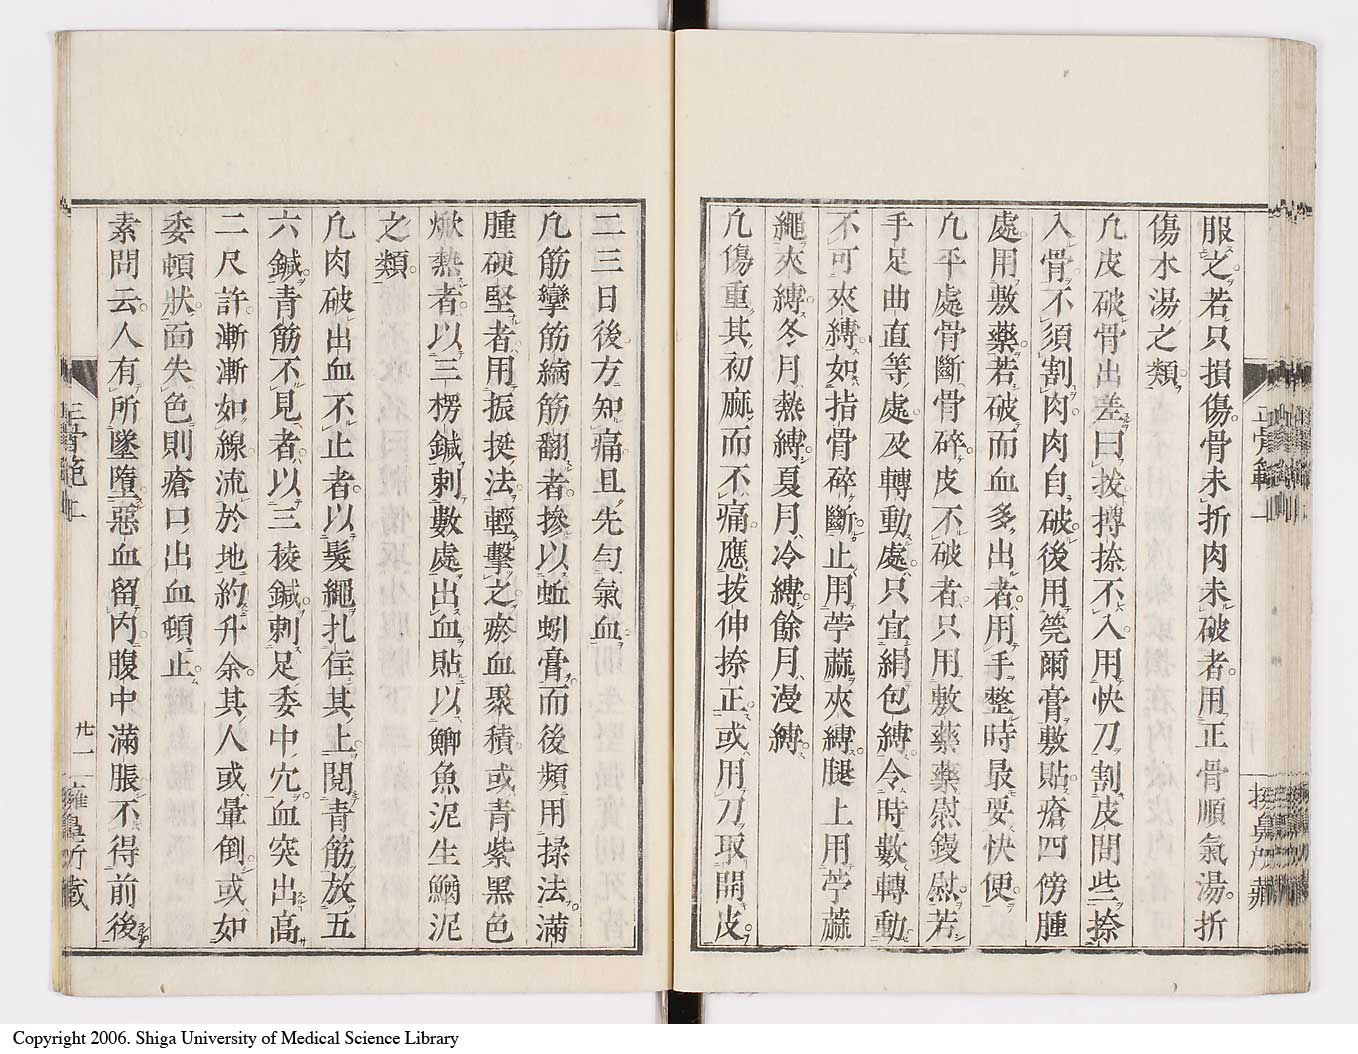 服之若只損傷骨未折肉未破者用正骨順氣湯折
傷木湯之類
凢皮破骨出差臼拔搏捺不入用快刀割皮間些捺
入骨不須割肉肉自破後用箢爾膏敷貼瘡四傍腫
處用敷藥若破而血多出者用手整時最要快便
凢平處骨斷骨碎皮不破者只用敷藥藥慰鏝慰若
手足曲直等處及轉動處只宜絹包縛令時數轉動
不可夾縛如指骨碎斷止用苧蔴夾縛腿上用苧蔴
繩夾縛冬月熱縛夏月冷縛餘月漫縛
凢傷重其初麻而不痛應拔伸捺正或用刀取開皮
二三日後方知痛且先勻氣血
凢筋攣筋縮筋翻者摻以蚯蚓膏而後頻用揉法滿
腫硬堅者用振挺法輕擊之瘀血聚積或青紫黑色
焮熱者以三楞鍼刺數處出血貼以鯽魚泥生鰌泥
之類
凢肉破出血不止者以髮繩扎住其上閱青筋放五
六鍼青筋不見者以三稜鍼刺足委中穴血突出高
二尺許漸漸如線流於地約升余其人或暈倒或如
委頓狀面失色則瘡口出血頓止
素問云人有所墜墮惡血留內腹中滿脹不得前後
廿一
擁鼻所藏
Copyright 2006. Shiga University of Medical Science Library